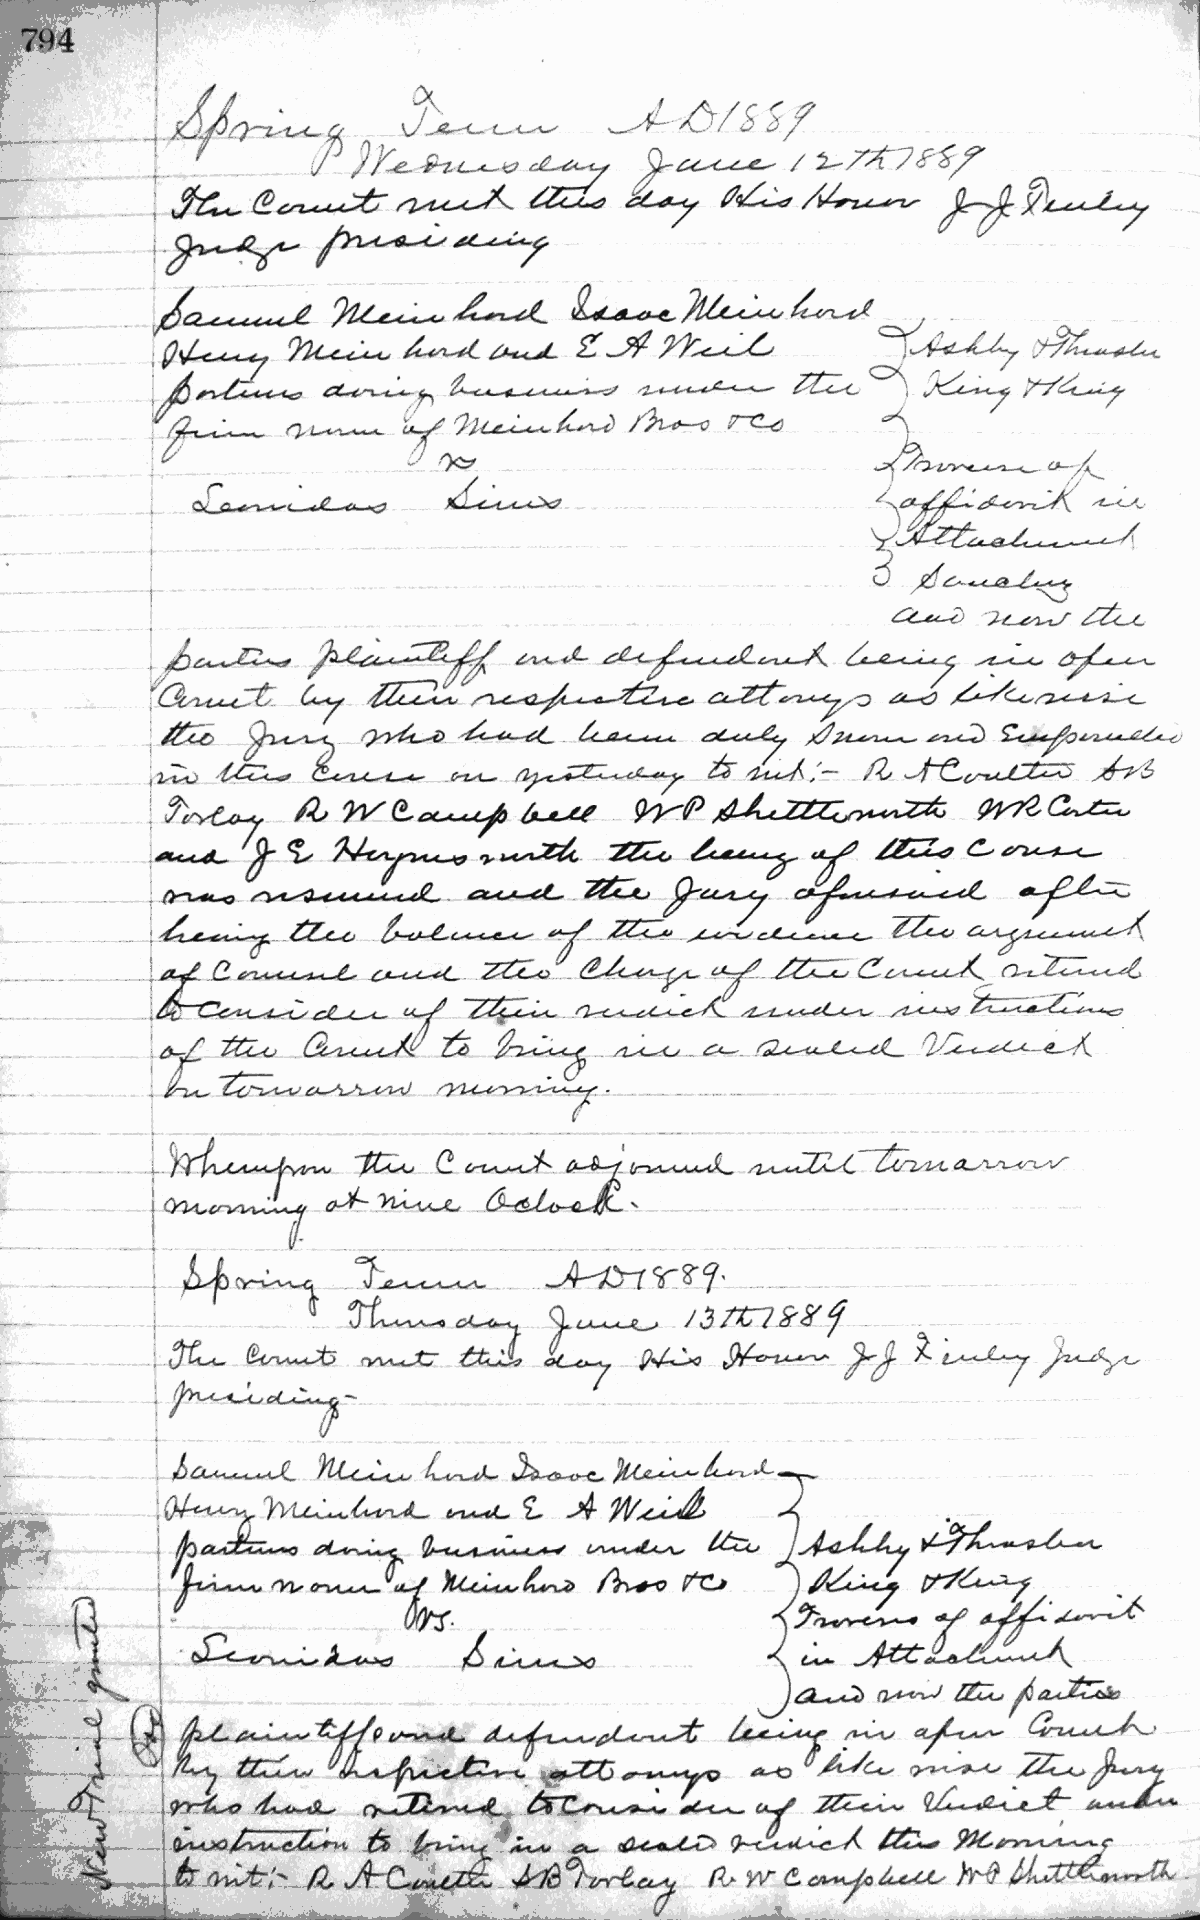 794
Spring Term AD 1889
Wednesday June 12th 1889
The Court met this day His Honor J J Finley
Judge presiding
Samuel Meinhard Isaac Meinhard
Henry Meinhard and E A Weil
partners doing business under the
firm name of Meinhard Bros & Co
vs
Leonidas Sims
Ashby & Thrasher
King & King
Traverse of
affidavit in
Attachment
Sanchez
and now the
parties plaintiff and defendant being in open
Court by their respective attonys as likewise
the Jury who had been duly sworn and Empanelled
in this cause on yesterday to wit:- R A Coulter S B
Torlay R W Campbell W P Shettleworth W R Carter
and J E Haynesworth the hearing of this Cause
was resumed and the Jury aforesaid after
hearing the balance of the evidence the argument
of Counsel and the Charge of the Court retired
to consider of their verdict under instructions
of the Court to bring in a sealed Verdict
on tomorrow morning.
Whereupon the Court adjourned until tomorrow
morning at nine Oclock.
Spring Term AD 1889.
Thursday June 13th 1889
The Court met this day His Honor J J Finley Judge
presiding-
Samuel Meinhard Isaac Meinhard
Henry Meinhard and E A Weil
partners doing business under the
firm name of Meinhard Bros & Co
vs.
Leonidas Sims
Ashby & Thrasher
King & King
Traverse of affidavit
in Attachment
and now the parties
plaintiff and defendant being in open Court
by their respective attonys as like wise the Jury
who had retired to consider of their Verdict under
instruction to bring in a sealed verdict this Morning
to wit:- R A Coulter S B Torlay R. W Campbell W P Shettleworth
New Trial granted